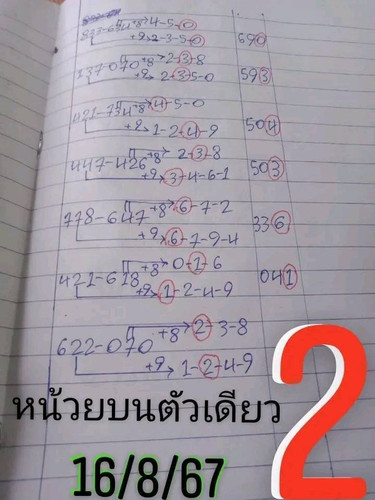 833-634 +8 4-5-0
+9 2-3-5-0 690
137-070 +8 2-3-8
+9 2-3-5-0 593
421-734 +8 4-5-0
+9 1-2-4-9 504
447-426 +8 2-3-8
+9 3-4-6-1 503
778-647 +8 6-7-2
+9 6-7-9-4 336
421-618 +8 0-1-6
+9 1-2-4-9 041
622-070 +8 2-3-8
+9 1-2-4-9
หน้วยบนตัวเดียว 2
16/8/67